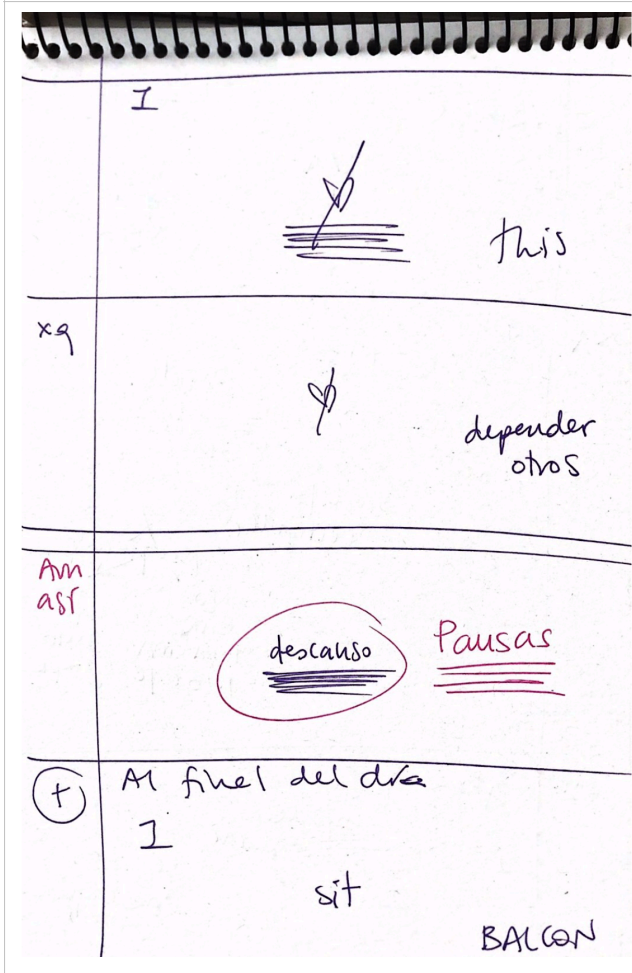 I
this
xq
depender
otros
Aun
así
descanso
Pausas
+
Al final del día
I
sit
BALCON